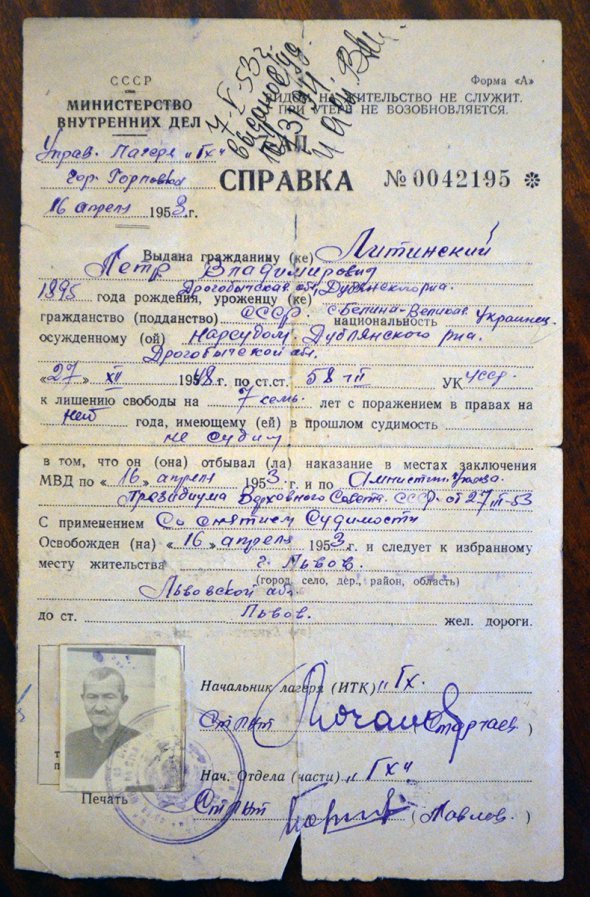 СССР
МИНИСТЕРСТВО
ВНУТРЕННИХ ДЕЛ
7-V-53г.
Форма «А»
ВИДОМ НА ЖИТЕЛЬСТВО НЕ СЛУЖИТ.
ПРИ УТЕРЕ НЕ ВОЗОБНОВЛЯЕТСЯ.
Управ. Лагеря „Гх“
гор. Горловка
16 апреля 1953 г.
СПРАВКА
№ 0042195 *
Выдана гражданину (ке) Литинский
Петр Владимирович
1895 года рождения, уроженцу (ке) Дрогобытская обл, Дублянского р-на.
гражданство (подданство) СССР. с Белина-Великая национальность Украинец.
осужденному (ой) Нарсудом. Дублянского р-на.
Дрогобытской обл.
«27» XII 1948 г. по ст.ст. 58 УК УССР.
к лишению свободы на 7 семь. лет с поражением в правах на
нет года, имеющему (ей) в прошлом судимость
не судим.
в том, что он (она) отбывал (ла) наказание в местах заключения
МВД по «16» апреля 1953 г. и по Амнистии Указа.
Президиума Верховного Совета СССР. от 27 III-53
С применением Со снятием Судимости
Освобожден (на) «16» апреля 1953 г. и следует к избранному
месту жительства г. Львов.
(город, село, дер., район, область)
Львовской обл.
до ст. Львов. жел. дороги.
Начальник лагеря (ИТК) „Гх.
Ст л-нт ( )
Нач. Отдела (части) „Гх“
Ст л-нт (Павлов.)
Печать